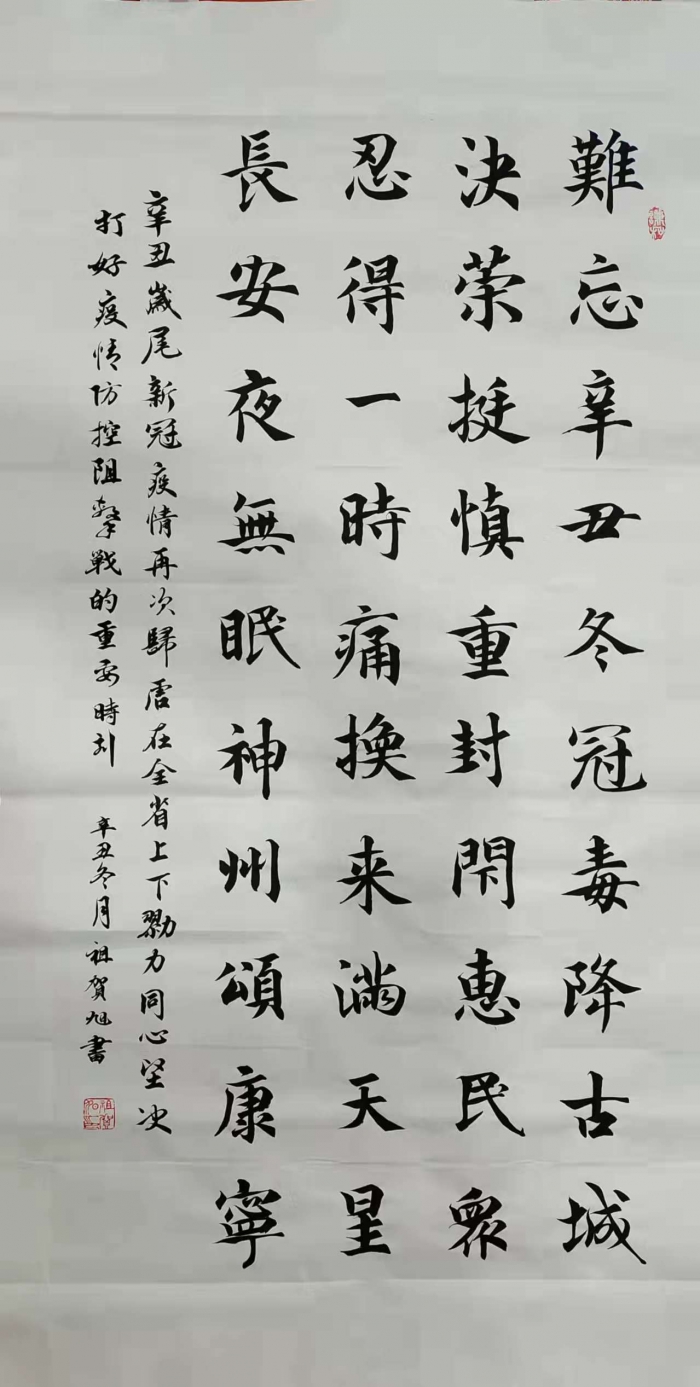 難忘辛丑冬冠毒降古城
決荣挺慎重封閇惠民衆
忍得一時痛換来滿天星
長安夜無眠神州頌康寧
辛丑嵗尾新冠疫情再次歸
在全省上下勠力同心坚决
打好疫情防控阻擊戰的重要時刻
辛丑冬月祖贺旭書